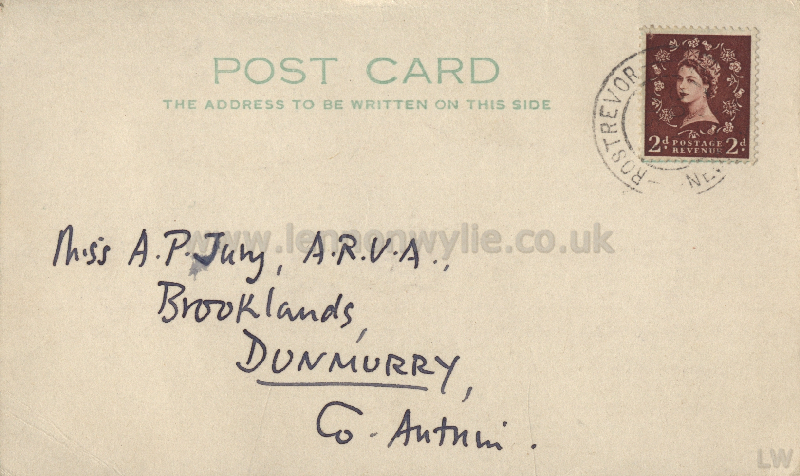 POST CARD
THE ADDRESS TO BE WRITTEN ON THIS SIDE
ROSTREVOR
2d POSTAGE REVENUE 2d
www.lennonwylie.co.uk
Miss A.P. Jury, A.R.V.A.,
Brooklands,
DUNMURRY,
Co. Antrim.
LW